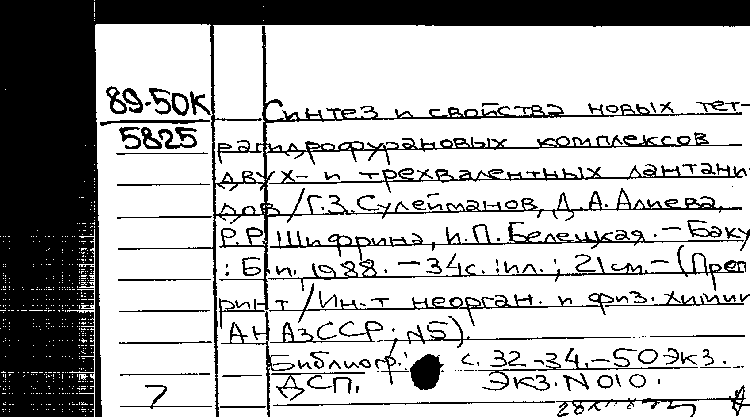 89-50К
5825
Синтез и свойства новых тет-
рагидрофурановых комплексов
двух- и трехвалентных лантани-
дов / Г.З. Сулейманов, Д.А. Алиева,
Р.Р. Шифрина, И.П. Белецкая. - Баку
: Б.и., 1988. - 34с. : ил. ; 21см. - (Преп
ринт / Ин-т неорган. и физ. химии
АН АзССР; N5).
Библиогр.: с. 32-34. - 50 экз.
ДСП. Экз. N 010.
7